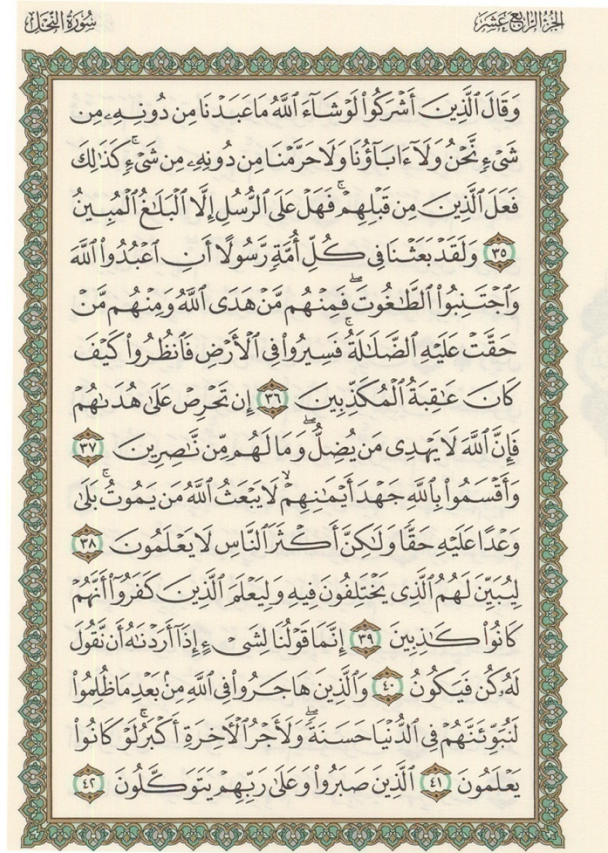 الجزء الرابع عشر
سورة النحل
وَقَالَ ٱلَّذِينَ أَشْرَكُوا۟ لَوْ شَآءَ ٱللَّهُ مَا عَبَدْنَا مِن دُونِهِۦ مِن
شَىْءٍ نَّحْنُ وَلَآ ءَابَآؤُنَا وَلَا حَرَّمْنَا مِن دُونِهِۦ مِن شَىْءٍ ۚ كَذَٰلِكَ
فَعَلَ ٱلَّذِينَ مِن قَبْلِهِمْ ۚ فَهَلْ عَلَى ٱلرُّسُلِ إِلَّا ٱلْبَلَٰغُ ٱلْمُبِينُ
٣٥ وَلَقَدْ بَعَثْنَا فِى كُلِّ أُمَّةٍ رَّسُولًا أَنِ ٱعْبُدُوا۟ ٱللَّهَ
وَٱجْتَنِبُوا۟ ٱلطَّٰغُوتَ ۖ فَمِنْهُم مَّنْ هَدَى ٱللَّهُ وَمِنْهُم مَّنْ
حَقَّتْ عَلَيْهِ ٱلضَّلَٰلَةُ ۚ فَسِيرُوا۟ فِى ٱلْأَرْضِ فَٱنظُرُوا۟ كَيْفَ
كَانَ عَٰقِبَةُ ٱلْمُكَذِّبِينَ ٣٦ إِن تَحْرِصْ عَلَىٰ هُدَىٰهُمْ
فَإِنَّ ٱللَّهَ لَا يَهْدِى مَن يُضِلُّ ۖ وَمَا لَهُم مِّن نَّٰصِرِينَ ٣٧
وَأَقْسَمُوا۟ بِٱللَّهِ جَهْدَ أَيْمَٰنِهِمْ ۙ لَا يَبْعَثُ ٱللَّهُ مَن يَمُوتُ ۚ بَلَىٰ
وَعْدًا عَلَيْهِ حَقًّا وَلَٰكِنَّ أَكْثَرَ ٱلنَّاسِ لَا يَعْلَمُونَ ٣٨
لِيُبَيِّنَ لَهُمُ ٱلَّذِى يَخْتَلِفُونَ فِيهِ وَلِيَعْلَمَ ٱلَّذِينَ كَفَرُوٓا۟ أَنَّهُمْ
كَانُوا۟ كَٰذِبِينَ ٣٩ إِنَّمَا قَوْلُنَا لِشَىْءٍ إِذَآ أَرَدْنَٰهُ أَن نَّقُولَ
لَهُۥ كُن فَيَكُونُ ٤٠ وَٱلَّذِينَ هَاجَرُوا۟ فِى ٱللَّهِ مِنۢ بَعْدِ مَا ظُلِمُوا۟
لَنُبَوِّئَنَّهُمْ فِى ٱلدُّنْيَا حَسَنَةً ۖ وَلَأَجْرُ ٱلْءَاخِرَةِ أَكْبَرُ ۚ لَوْ كَانُوا۟
يَعْلَمُونَ ٤١ ٱلَّذِينَ صَبَرُوا۟ وَعَلَىٰ رَبِّهِمْ يَتَوَكَّلُونَ ٤٢